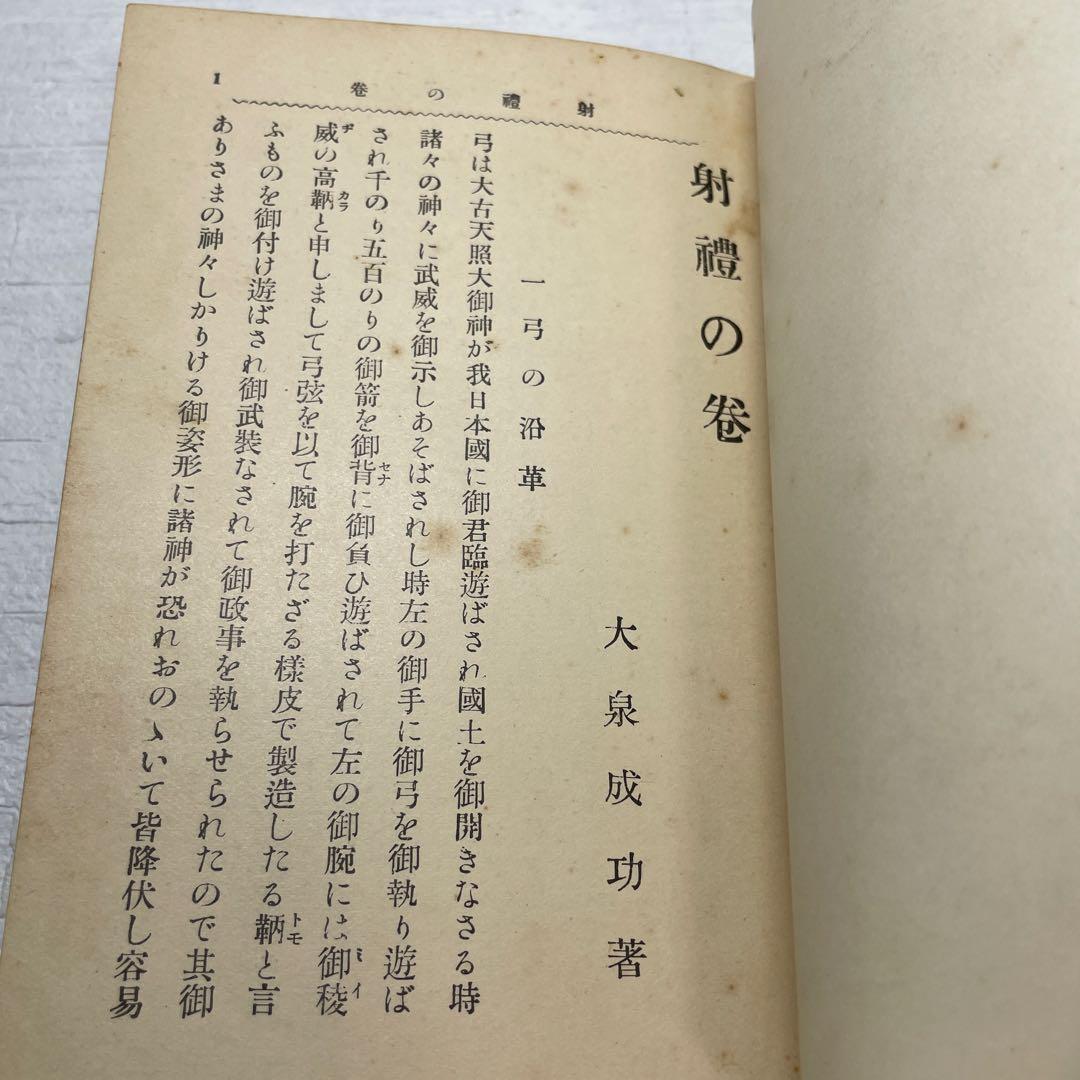 射禮の卷
1
射禮の卷
大泉成功著
一弓の沿革
弓は大古天照大御神が我日本國に御君臨遊ばされ國土を御開きなさる時
諸々の神々に武威を御示しあそばされし時左の御手に御弓を御執り遊ば
され千のり五百のりの御箭を御背セナに御負ひ遊ばされて左の御腕には御稜ミイ
威ヂの高鞆カラと申しまして弓弦を以て腕を打たざる樣皮で製造したる鞆トモと言
ふものを御付け遊ばされ御武裝なされて御政事を執らせられたので其御
ありさまの神々しかりける御姿形に諸神が恐れおのゝいて皆降伏し容易